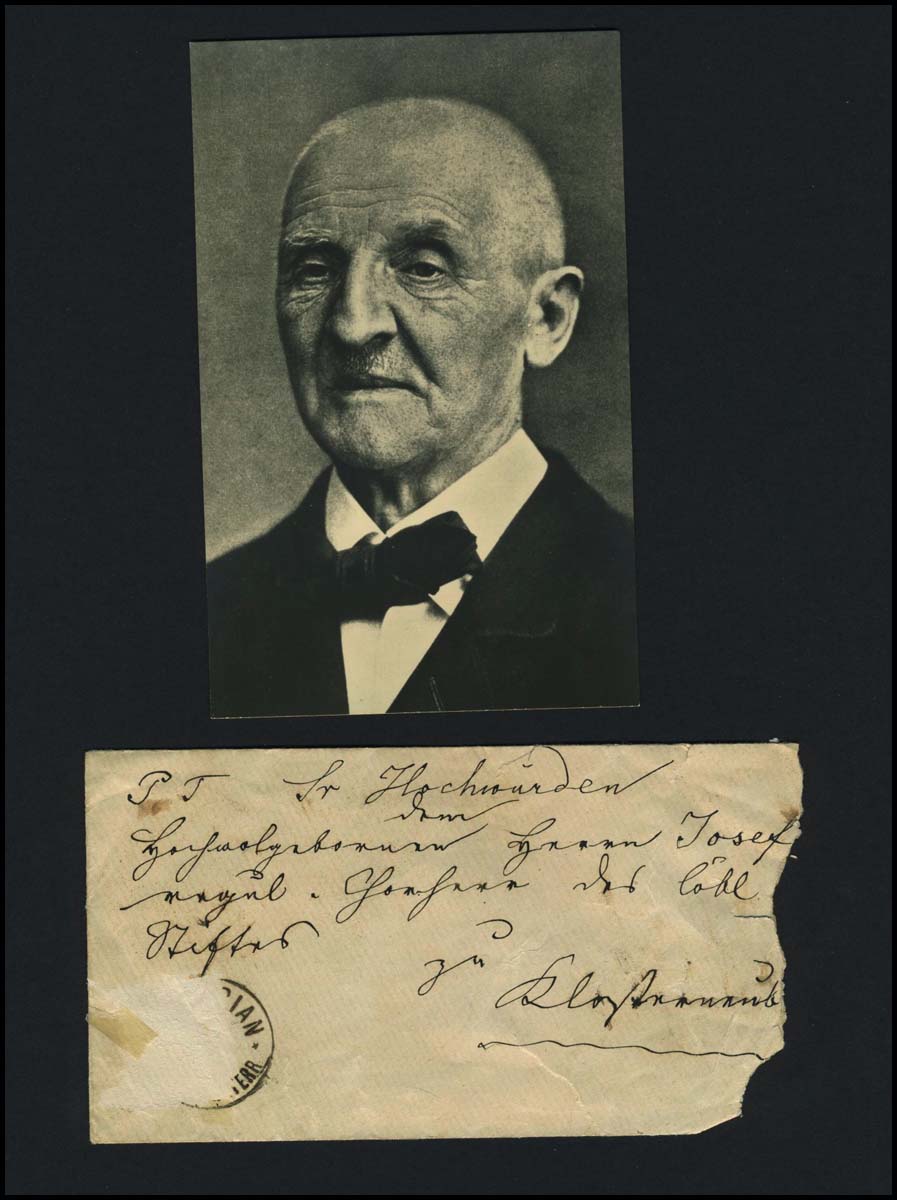 P T Sr Hochwürden
dem
Hochwolgebornen Herrn Josef
regul. Chorherr des löbl
Stiftes
zu
Klosterneub
RIAN
TERR